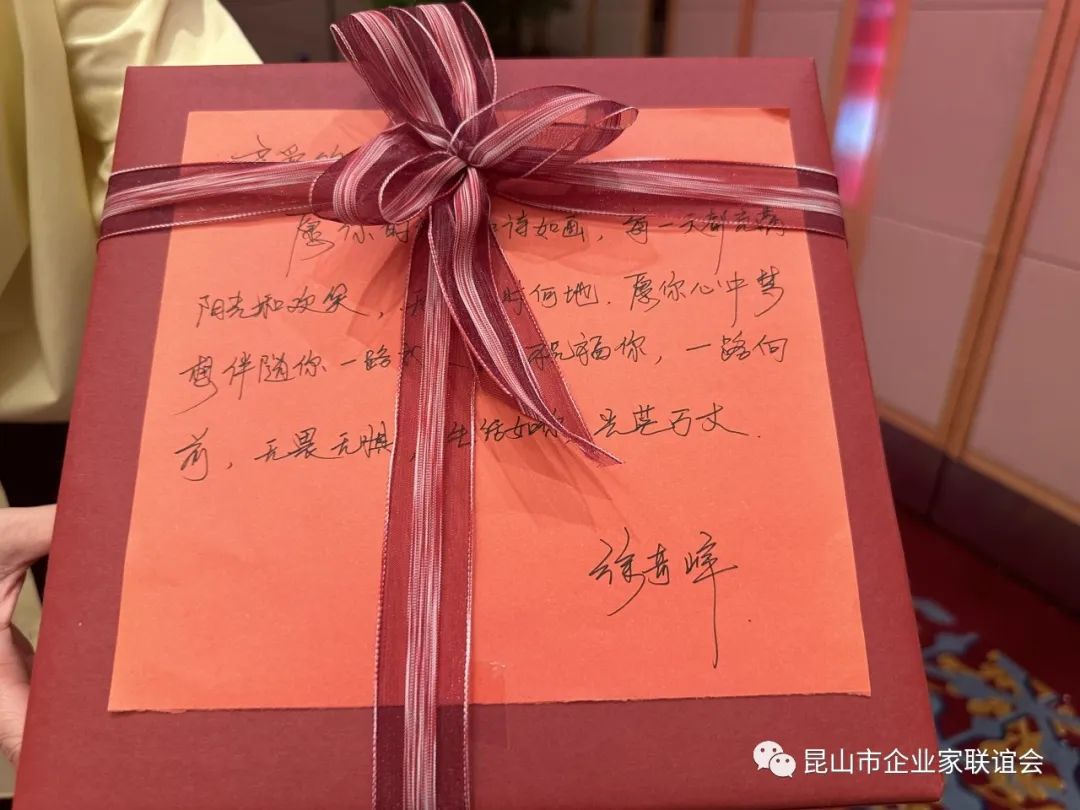 亲爱的
愿你的 如诗如画，每一天都充满
阳光和欢笑，无 时何地．愿你心中梦
想伴随你一路 祝福你，一路向
前，无畏无惧，生活如 光芒万丈．
徐 峰
昆山市企业家联谊会